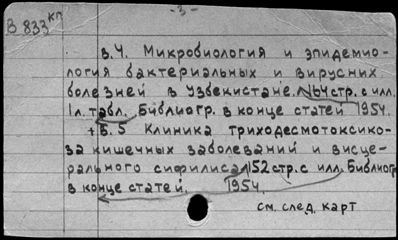 В 833кп
- 3 -
в.4. Микробиология и эпидемио-
логия бактериальных и вирусних
болезней в Узбекистане. 164 стр. с илл.
1 л. табл. Библиогр. в конце статей 1954.
+ Б. 5 Клиника триходесмотоксико-
за кишечных заболеваний и висце-
рального сифилиса 152 стр. с илл. Библиогр
в конце статей. 1954.
см. след. карт